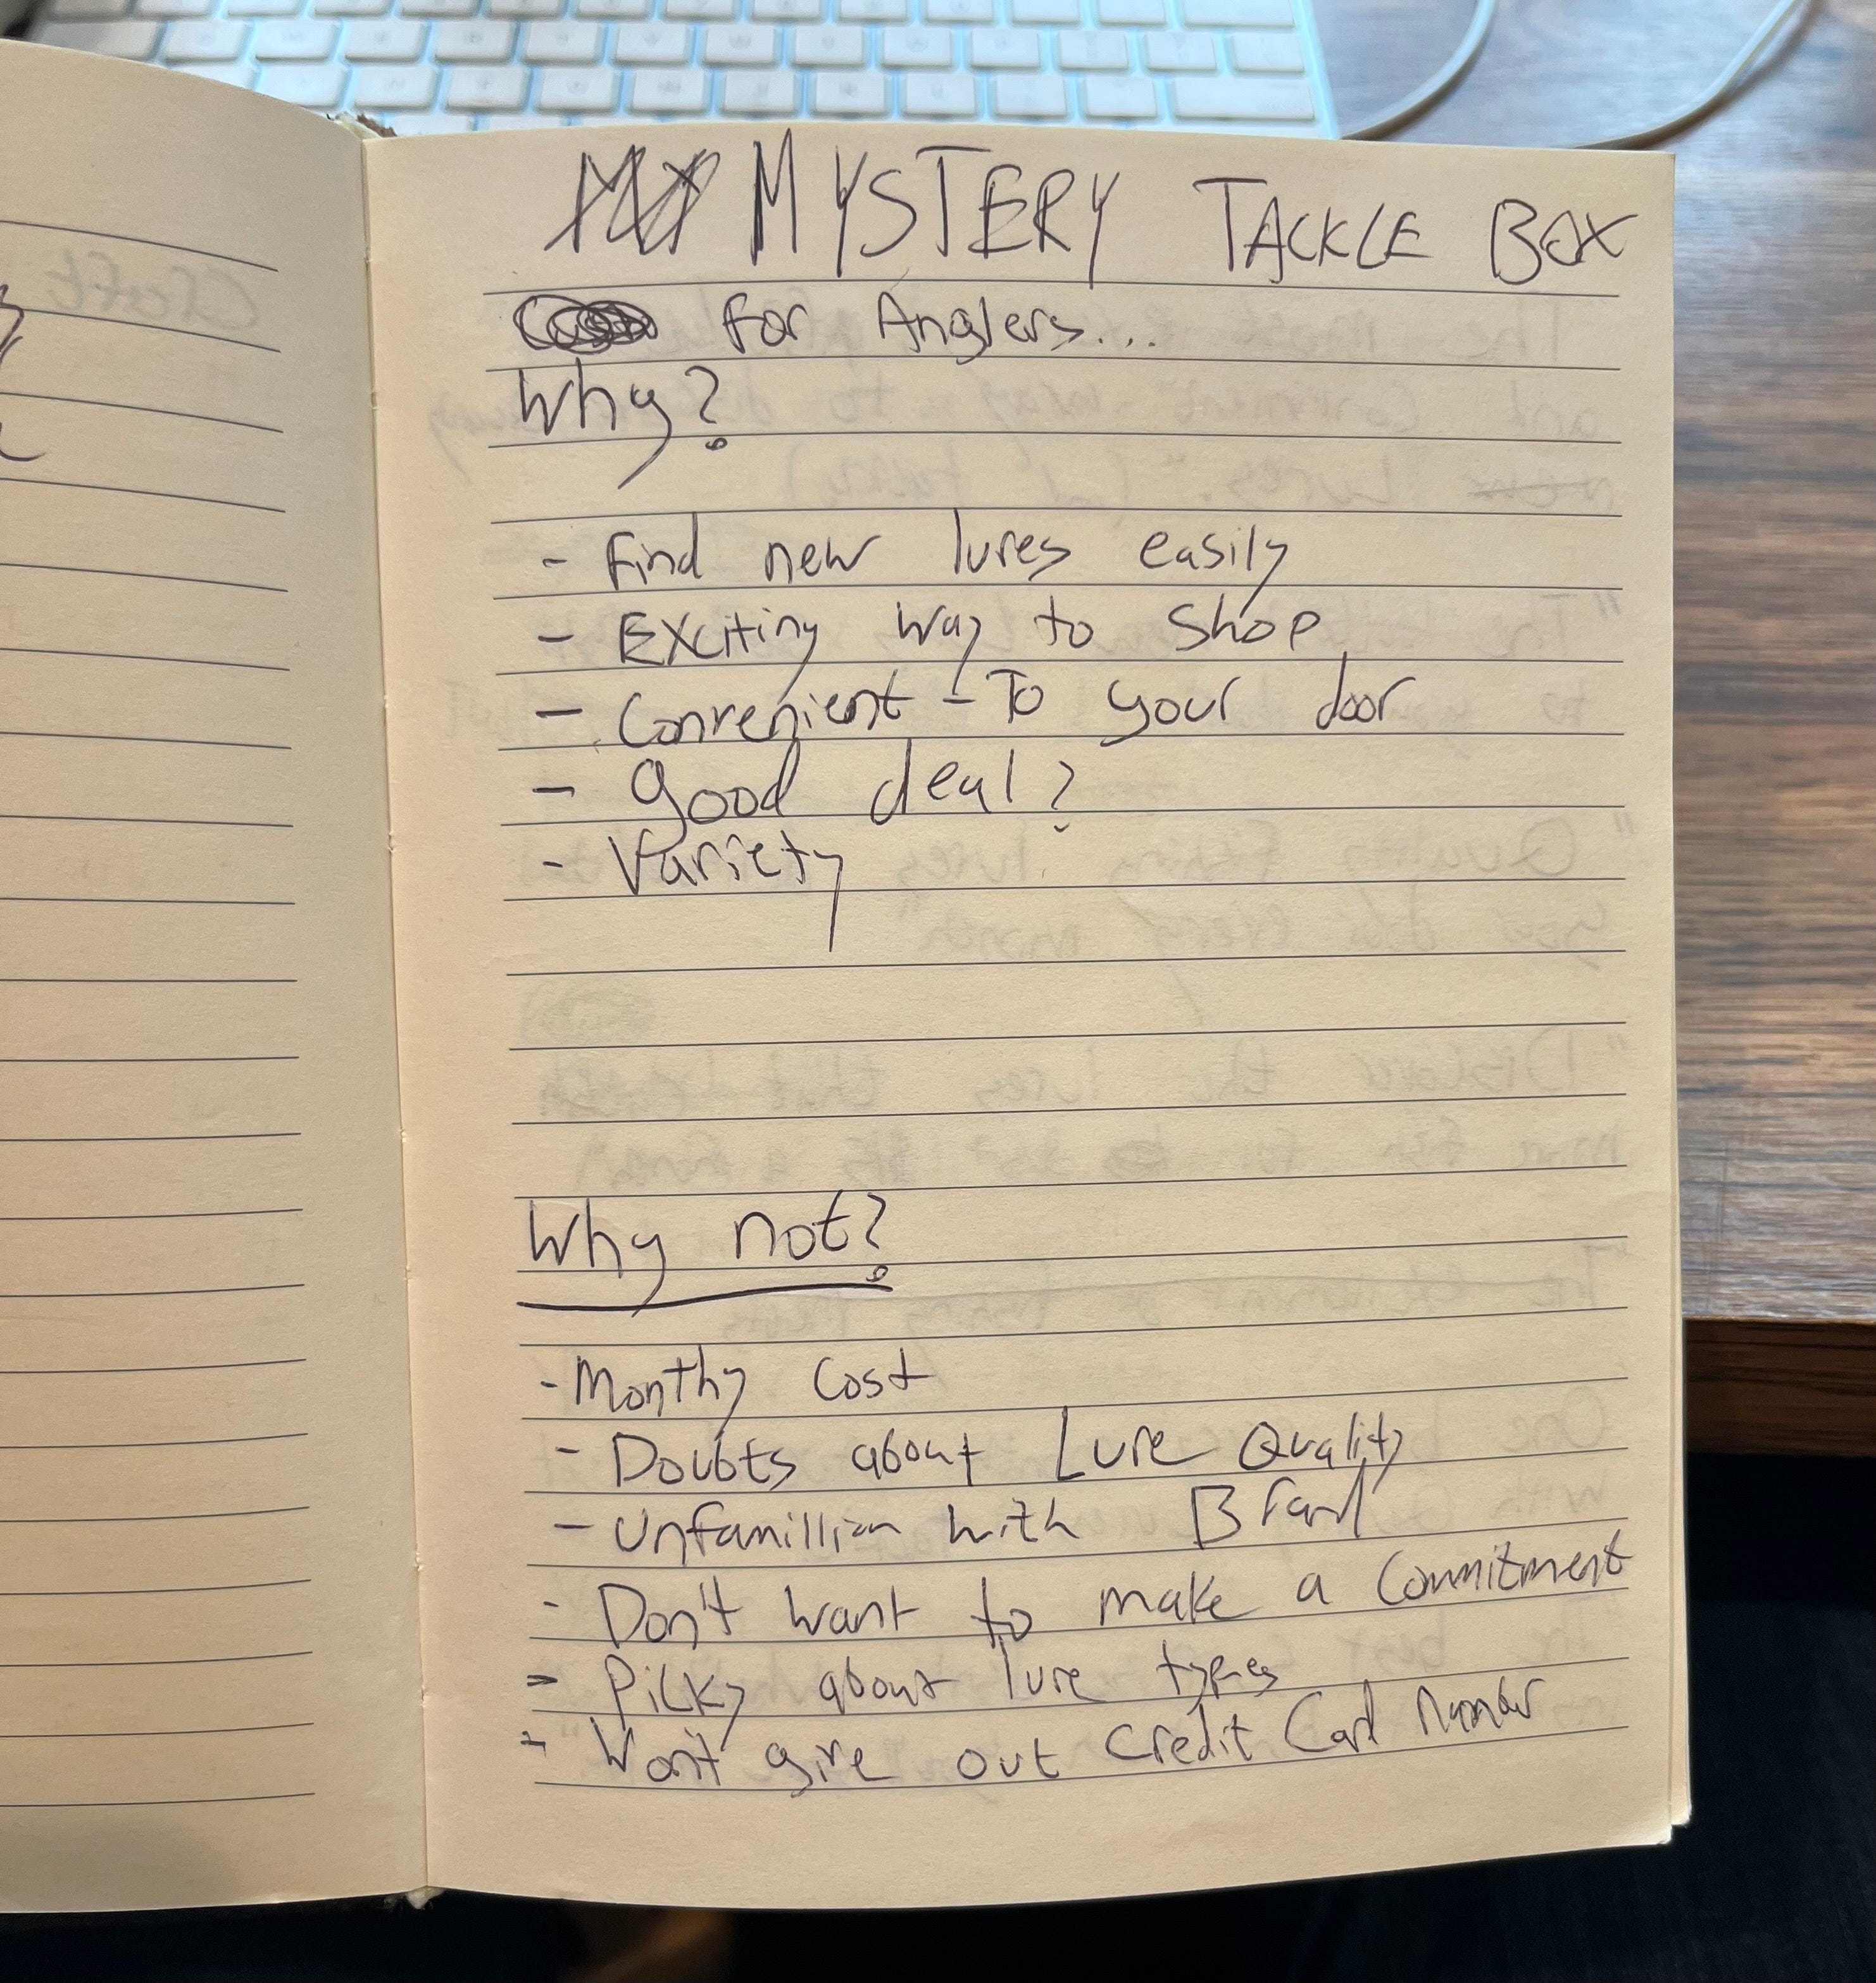 MYSTERY TACKLE BOX
For Anglers...
Why?
- Find new lures easily
- Exciting way to shop
- Convenient - To your door
- Good deal?
- Variety
Why not?
- Monthy Cost
- Doubts about Lure Quality
- Unfamillian with Brand
- Don't want to make a Commitment
- Picky about lure types
- Won't give out Credit Card Number